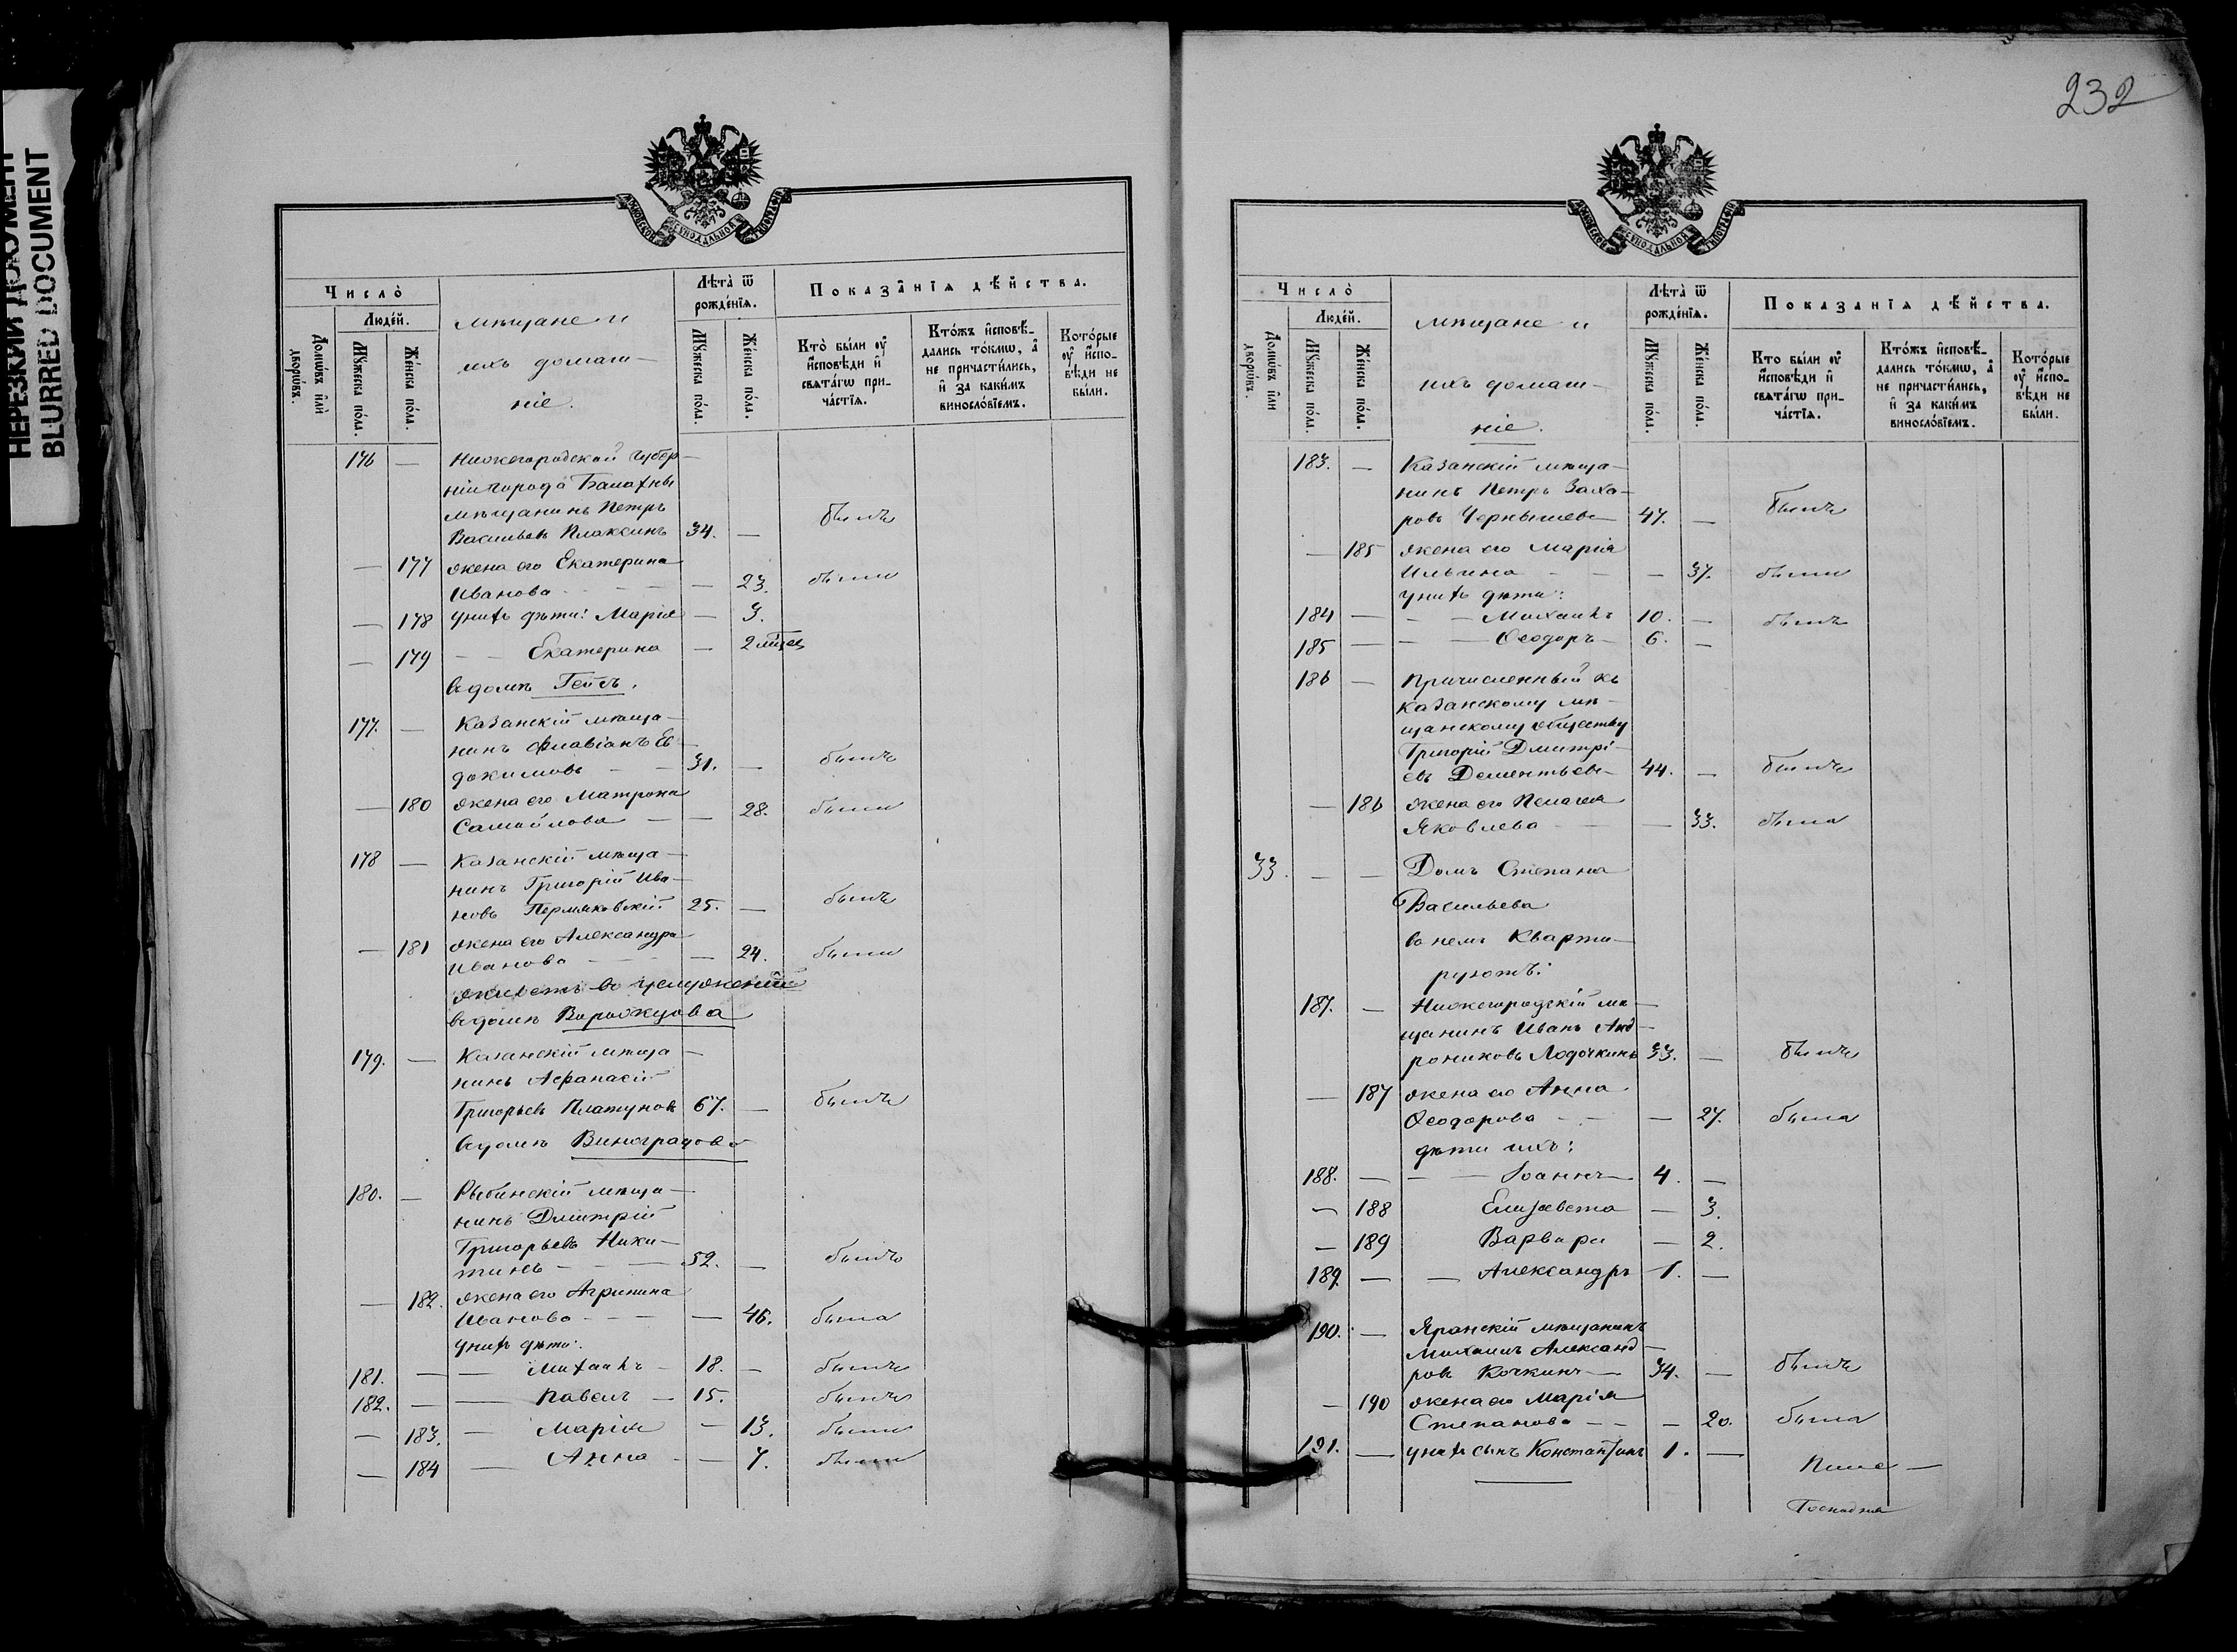 НЕРЕЗКИЙ ДОКУМЕНТ
BLURRED DOCUMENT
Число̀
Людѣ́й.
Домѡ́въ и҆лѝ дворѡ́въ.
Мꙋ́жеска по́ла.
Же́нска по́ла.
мѣщане и
ихъ домаш-
ніе.
Лѣта̀ ѿ рожде́нїѧ.
Мꙋ́жеска по́ла.
Же́нска по́ла.
Показа̂нїѧ дѣ́йства.
Кто̀ бы́ли ᲂу҆ и҆́сповѣди и҆ свѧта́гѡ прича́стїѧ.
Кто́жъ и҆сповѣ́дались то́кмѡ, а҆ не причасти́лись, и҆ за каки́мъ виносло́вїемъ.
Кото́рые ᲂу҆ и҆́сповѣди не бы́ли.
176 — Нижегородской губер-
ніи города Балахны
мѣщанинъ Петръ
Васильевъ Плаксинъ 34. — былъ
— 177 жена его Екатерина
Иванова — 23. была
— 178 у нихъ дѣти: Марія — 3.
— 179 — — Екатерина — 2 мѣсяц
въ домѣ
177. — Казанскій мѣща-
нинъ Флавіанъ Ев-
докимовъ — — 31. — былъ
— 180 жена его Матрона
Самойлова — — 28. была
178 — Казанскій мѣща-
нинъ Григорій Ива-
новъ Пермяковскій 25. — былъ
— 181 жена его Александра
Иванова — — 24. была
живетъ во
въ домѣ Ворожцова
179. — Казанскій мѣща-
нинъ Афанасій
Григорьевъ Платуновъ 67. — былъ
въ домѣ Виноградова
180. — Рыбинскій мѣща-
нинъ Дмитрій
Григорьевъ Ники-
тинъ — — 52. — былъ
— 182. жена его Агрипина
Иванова — — 46. была
у нихъ дѣти:
181. — — Михаилъ — 18. — былъ
182. — — Павелъ — 15. былъ
— 183. — Марія — 13. была
— 184 — Анна — 7. была
232
Число̀
Людѣ́й.
Домѡ́въ и҆лѝ дворѡ́въ.
Мꙋ́жеска по́ла.
Же́нска по́ла.
мѣщане и
ихъ домаш-
ніе.
Лѣта̀ ѿ рожде́нїѧ.
Мꙋ́жеска по́ла.
Же́нска по́ла.
Показа̂нїѧ дѣ́йства.
Кто бы́ли ᲂу҆ и҆́сповѣди и҆ свѧта́гѡ прича́стїѧ.
Кто́жъ и҆сповѣ́дались то́кмѡ, а҆ не причасти́лись, и҆ за каки́мъ виносло́вїемъ.
Кото́рые ᲂу҆ и҆́сповѣди не бы́ли.
183. — Казанскій мѣща-
нинъ Петръ Заха-
ровъ Чернышевъ 47. — былъ
— 185 жена его Марія
Ильина — — — 37. была
у нихъ дѣти:
184 — — — Михаилъ 10. — былъ
185 — — — Ѳеодоръ — 6. —
186 — Причисленный къ
казанскому мѣ-
щанскому обществу
Григорій Дмитрі-
евъ Дементьевъ 44. — былъ
— 186 жена его Пелагея
Яковлева — — 33. была
33. — — Домъ Степана
Васильева
въ немъ кварти-
руютъ:
187. — Нижегородскій мѣ-
щанинъ Иванъ Анд-
рониковъ Лодочкинъ 33. — былъ
— 187 жена его Анна
Ѳеодорова — — 27. была
дѣти ихъ:
188. — — — Іоаннъ — 4. —
— 188 Елизавета — 3.
— 189 Варвара — 2.
189. — — Александръ 1. —
190. — Яранскій мѣщанинъ
Михаилъ Александ-
ровъ Кочкинъ — 34. — былъ
— 190 жена его Марія
Степанова — — — 20. была
191. — у нихъ сынъ Константинъ 1. —